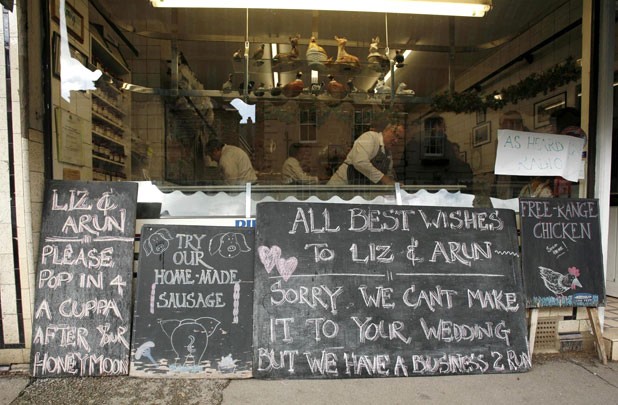 LIZ &
ARUN
PLEASE
POP IN 4
A CUPPA
AFTER YOUR
HONEYMOON
TRY
OUR
HOME-MADE
SAUSAGE
ALL BEST WISHES
TO LIZ & ARUN
SORRY WE CANT MAKE
IT TO YOUR WEDDING
BUT WE HAVE A BUSINESS 2 RUN
AS HEARD
RADIO
FREE-RANGE
CHICKEN